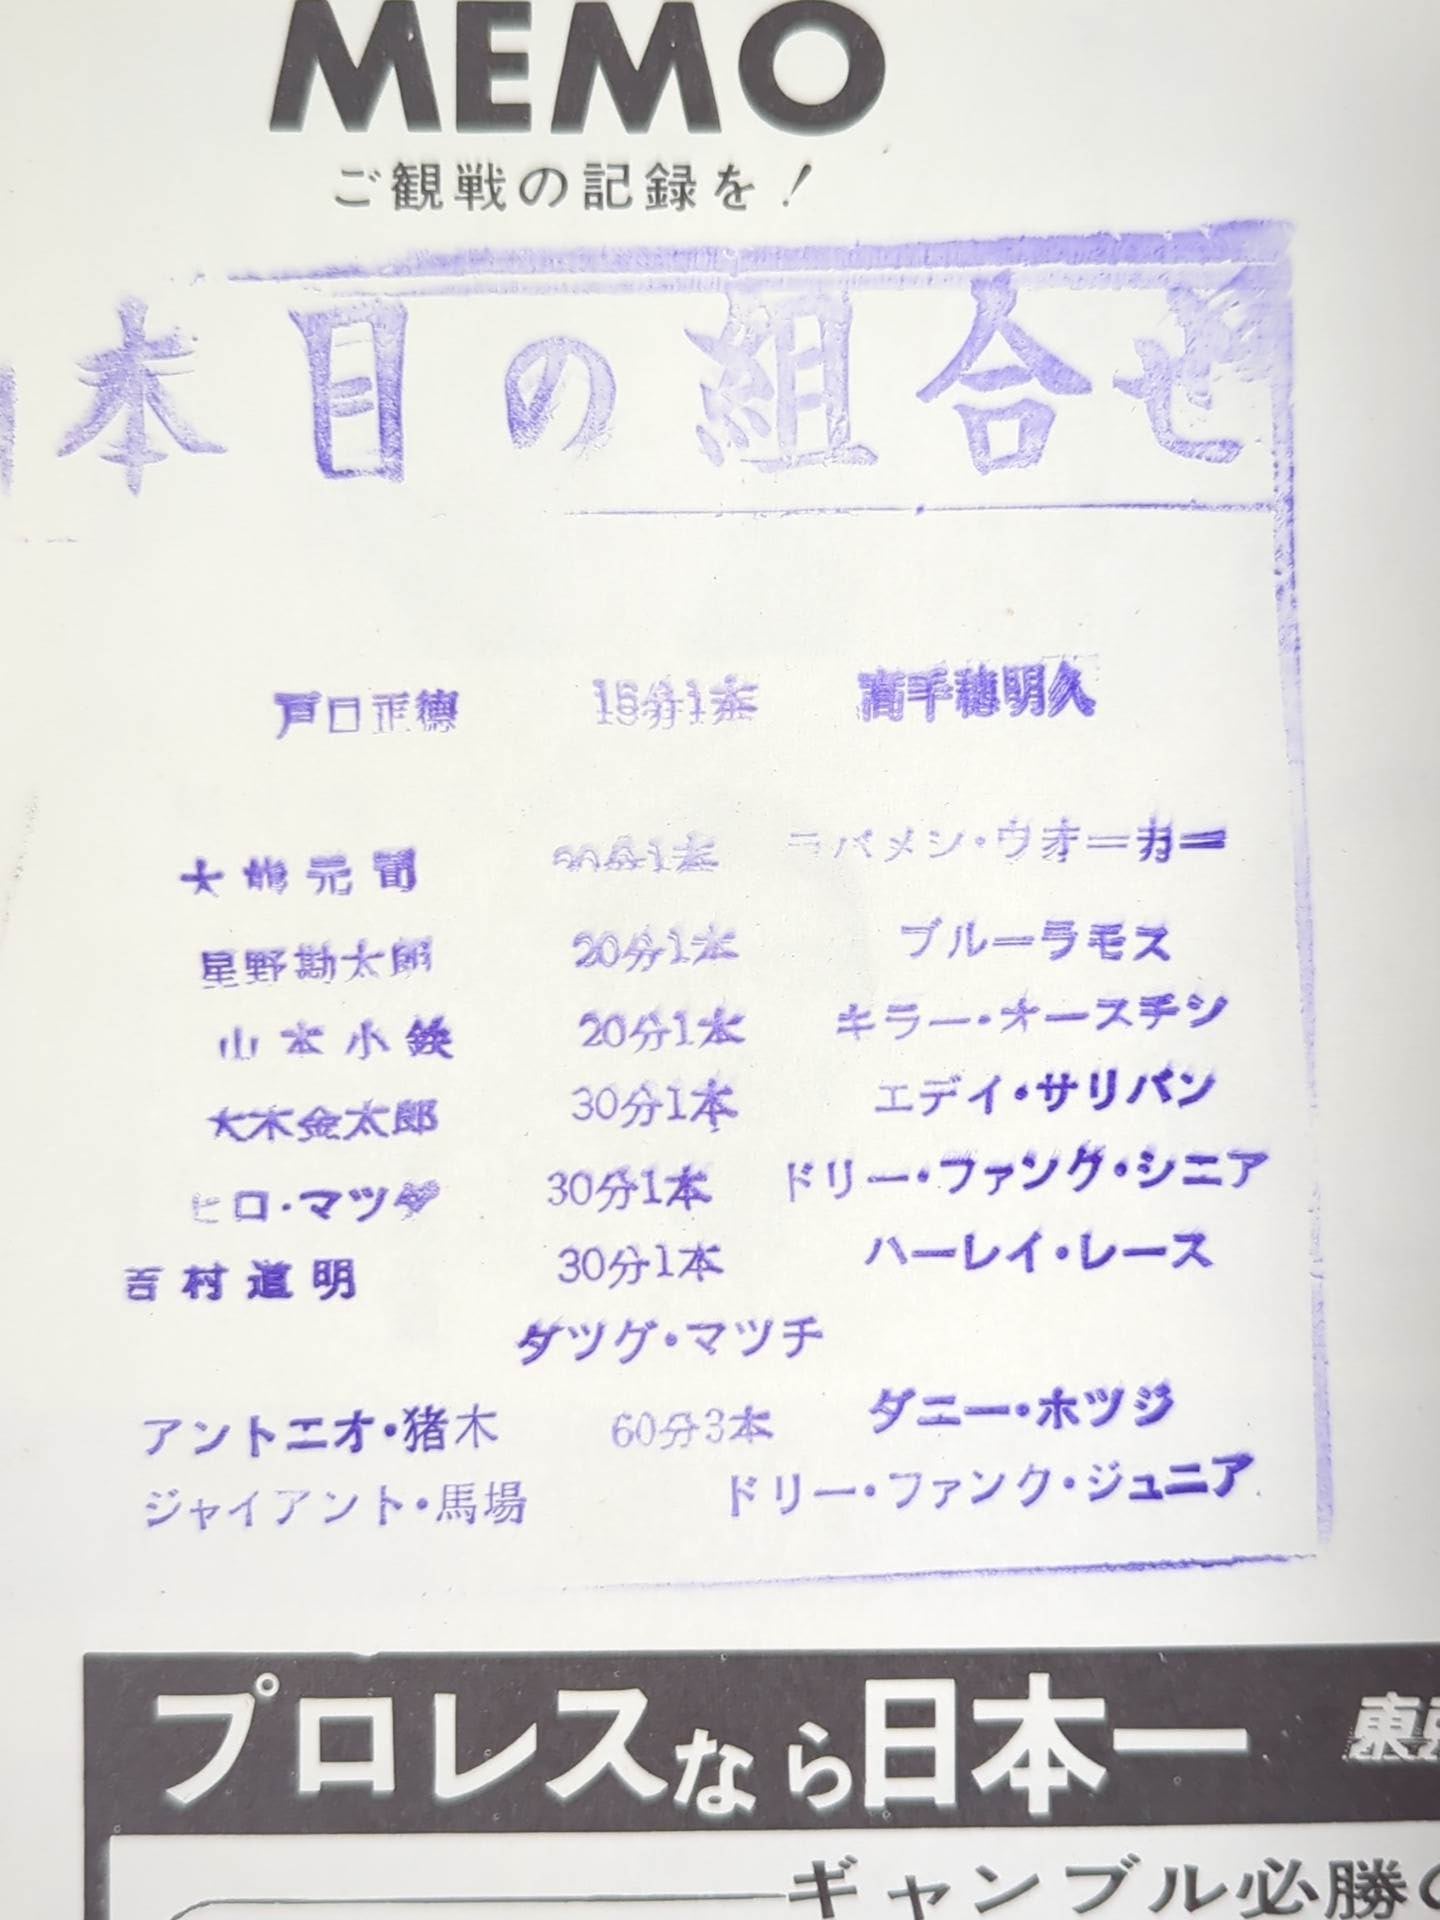 MEMO
ご観戦の記録を!
本日の組合せ
戸口正徳 15分1本 高千穂明久
大熊元司 20分1本 ラバメン・ウオーカー
星野勘太郎 20分1本 ブルーラモス
山本小鉄 20分1本 キラー・オースチン
大木金太郎 30分1本 エデイ・サリバン
ヒロ・マツダ 30分1本 ドリー・ファング・シニア
吉村道明 30分1本 ハーレイ・レース
タツグ・マツチ
アントニオ・猪木 60分3本 ダニー・ホツジ
ジャイアント・馬場 ドリー・ファンク・ジュニア
プロレスなら日本一 東
ギャンブル必勝の